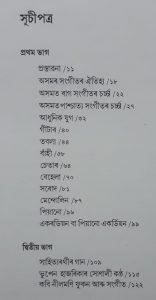 সূচীপত্ৰ
প্ৰথম ভাগ
প্ৰস্তাৱনা /১১
অসমৰ সংগীতৰ ঐতিহ্য /১৮
অসমত ৰাগ সংগীতৰ চৰ্চ্চা /২২
অসমত পাশ্চাত্য সংগীতৰ চৰ্চ্চা /২৭
আধুনিক যুগ /৩২
গীটাৰ /৪০
তবলা /৪৪
বাঁহী /৫৮
চেতাৰ /৬৪
বেহেলা /৭০
সৰোদ /৮১
মেন্দোলিন /৮৭
পিয়ানো /৯৬
একৰডিয়ন বা পিয়ানো একৰ্ডিয়ন /৯৯
দ্বিতীয় ভাগ
সাহিত্যৰথীৰ গান /১০৯
ভূপেন হাজৰিকাৰ সোণালী কণ্ঠ /১১৫
কবি নীলমণি ফুকন আৰু সংগীত /১২২